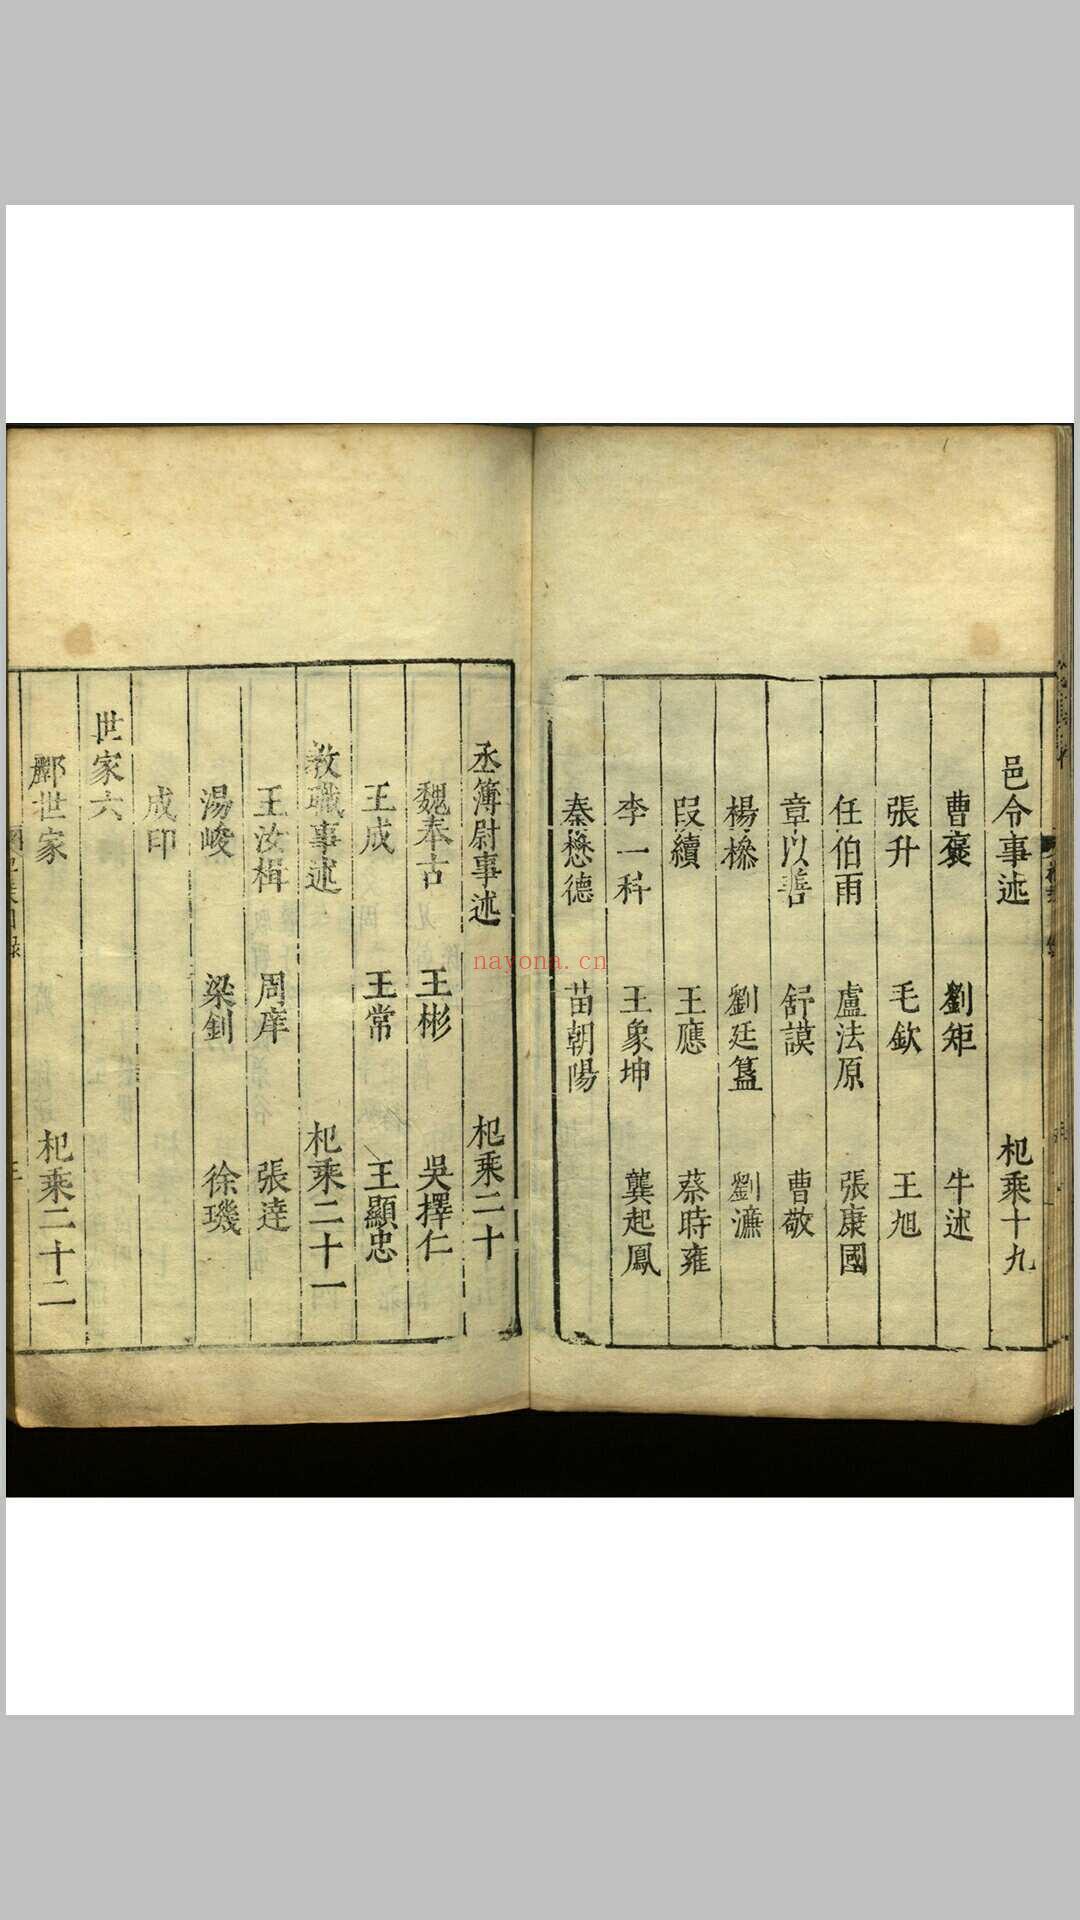 邑令事述 杞乘十九
曹褒 劉矩 牛述
張升 毛欽 王旭
任伯雨 盧法原 張康國
章以善 舒謨 曹敬
楊檖 劉廷簋 劉濂
段續 王應 蔡時雍
李一科 王象坤 龔起鳳
秦懋德 苗朝陽
丞簿尉事述 杞乘二十
魏奉古 王彬 吳擇仁
王成 王常 王顯忠
教職事述 杞乘二十一
王汝楫 周庠 張達
湯峻 梁釗 徐璣
成印
世家六
酈世家 杞乘二十二
nayona.cn